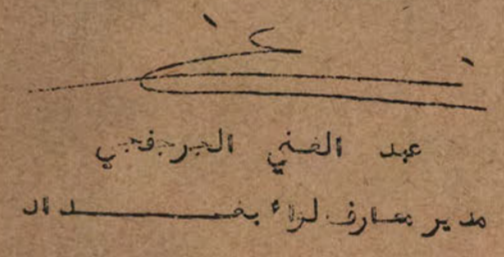 عبد الغني الجرجفجي
مدير معارف لواء بغـــــداد